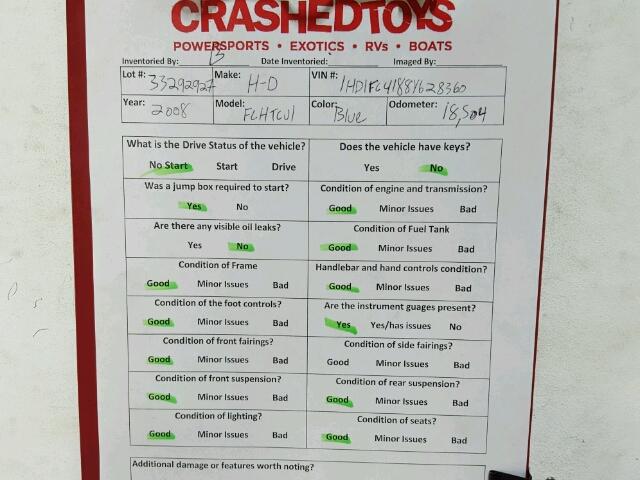 CRASHEDTOYS
POWERSPORTS • EXOTICS • RVs • BOATS
Inventoried By: B Date Inventoried: Imaged By:
Lot #: 33292927 Make: H-D VIN #: 1HD1FC4188Y628360
Year: 2008 Model: FLHTCUI Color: Blue Odometer: 18,504
What is the Drive Status of the vehicle? Does the vehicle have keys?
No Start Start Drive Yes No
Was a jump box required to start? Condition of engine and transmission?
Yes No Good Minor Issues Bad
Are there any visible oil leaks? Condition of Fuel Tank
Yes No Good Minor Issues Bad
Condition of Frame Handlebar and hand controls condition?
Good Minor Issues Bad Good Minor Issues Bad
Condition of the foot controls? Are the instrument guages present?
Good Minor Issues Bad Yes Yes/has issues No
Condition of front fairings? Condition of side fairings?
Good Minor Issues Bad Good Minor Issues Bad
Condition of front suspension? Condition of rear suspension?
Good Minor Issues Bad Good Minor Issues Bad
Condition of lighting? Condition of seats?
Good Minor Issues Bad Good Minor Issues Bad
Additional damage or features worth noting?